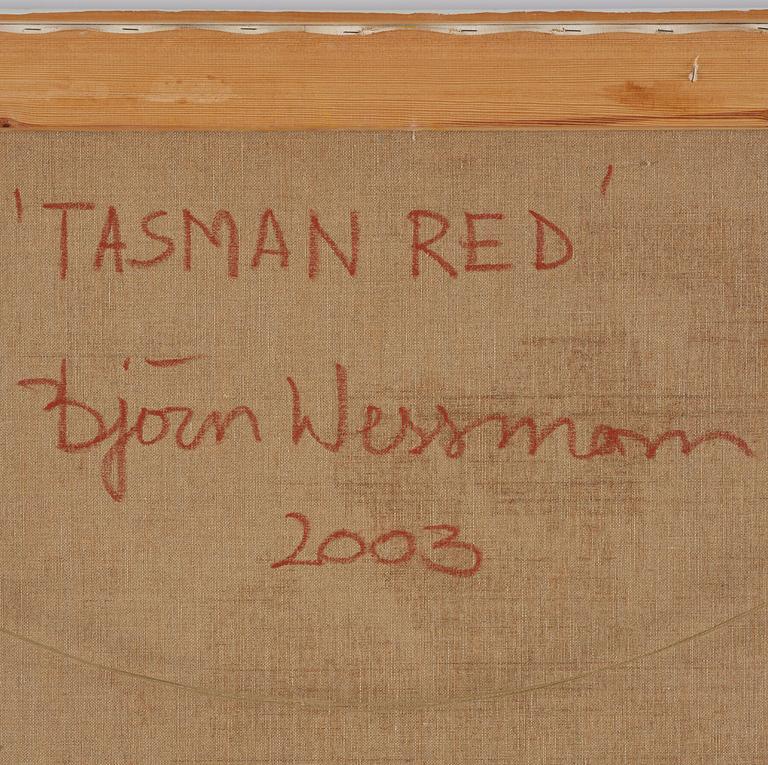 'TASMAN RED'
Björn Wessmann
2003